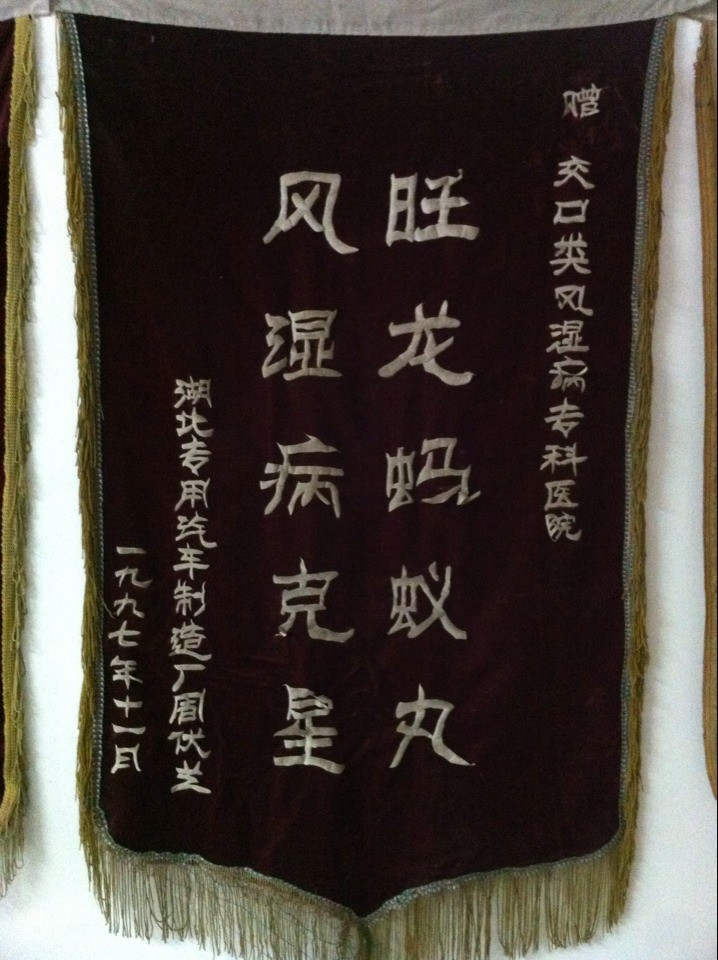 赠 交口类风湿病专科医院
旺龙蚂蚁丸
风湿病克星
湖北专用汽车制造厂周伏兰
一九九七年十一月